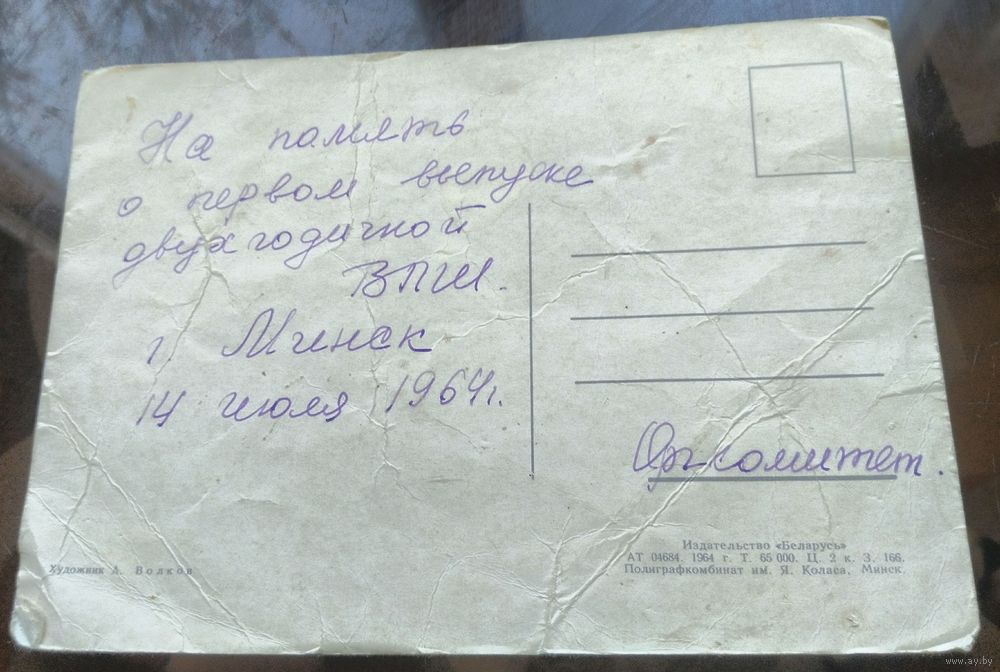 На память
о первом выпуске
двухгодичной
ВПШ.
г Минск
14 июля 1964г.
Оргкомитет.
Художник А. Волков
Издательство «Беларусь»
АТ 04684. 1964 г. Т. 65 000. Ц. 2 к. З. 166.
Полиграфкомбинат им. Я. Коласа, Минск.
www.ay.by